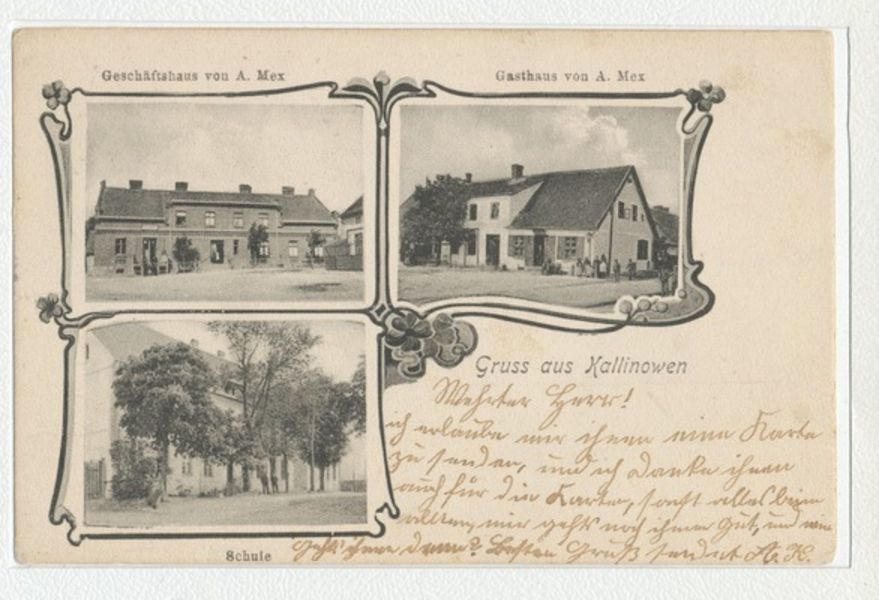 Geschäftshaus von A. Mex
Gasthaus von A. Mex
Gruss aus Kallinowen
Wehrter Herr!
ich erlaube mir ihnen eine Karte
zu senden, und ich danke ihnen
auch für die Karte, sonst alles beim
alten, mir gehts noch immer gut, und wie
gehts ihnen denn? Besten Gruß sendet A. K.
Schule